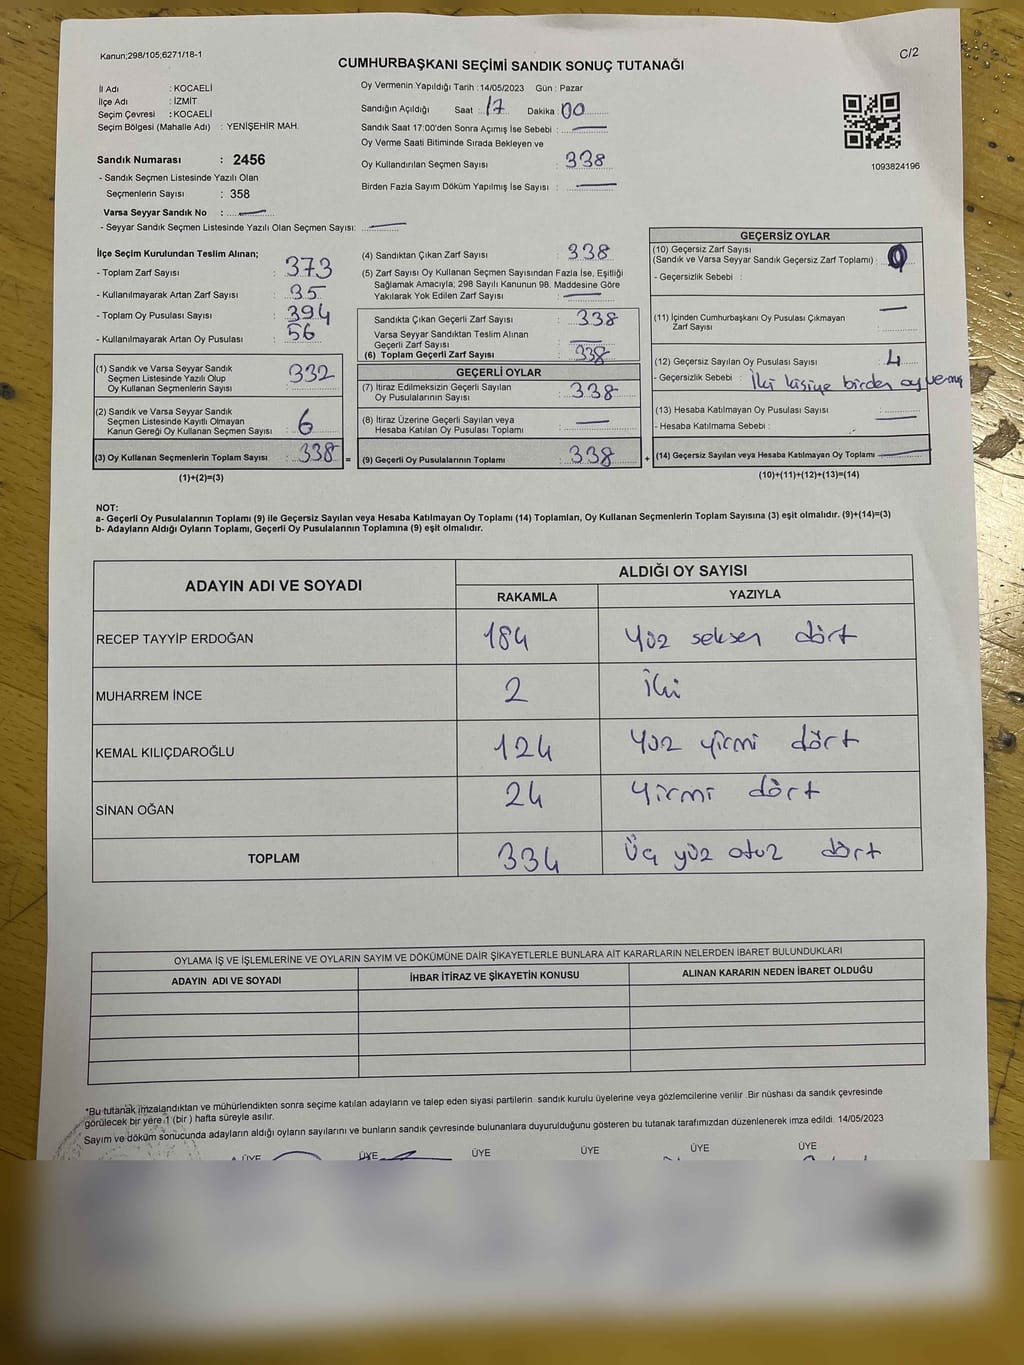 Kanun;298/105;6271/18-1
C/2
CUMHURBAŞKANI SEÇİMİ SANDIK SONUÇ TUTANAĞI
İl Adı : KOCAELİ
İlçe Adı : İZMİT
Seçim Çevresi : KOCAELİ
Seçim Bölgesi (Mahalle Adı) : YENİŞEHİR MAH.
Sandık Numarası : 2456
- Sandık Seçmen Listesinde Yazılı Olan
Seçmenlerin Sayısı : 358
Varsa Seyyar Sandık No :
- Seyyar Sandık Seçmen Listesinde Yazılı Olan Seçmen Sayısı:
Oy Vermenin Yapıldığı Tarih : 14/05/2023 Gün : Pazar
Sandığın Açıldığı Saat : 17 Dakika : 00
Sandık Saat 17:00'den Sonra Açımış İse Sebebi :
Oy Verme Saati Bitiminde Sırada Bekleyen ve
Oy Kullandırılan Seçmen Sayısı : 338
Birden Fazla Sayım Döküm Yapılmış İse Sayısı :
1093824196
İlçe Seçim Kurulundan Teslim Alınan;
- Toplam Zarf Sayısı : 373
- Kullanılmayarak Artan Zarf Sayısı : 35
- Toplam Oy Pusulası Sayısı : 394
- Kullanılmayarak Artan Oy Pusulası : 56
(1) Sandık ve Varsa Seyyar Sandık
Seçmen Listesinde Yazılı Olup
Oy Kullanan Seçmenlerin Sayısı : 332
(2) Sandık ve Varsa Seyyar Sandık
Seçmen Listesinde Kayıtlı Olmayan
Kanun Gereği Oy Kullanan Seçmen Sayısı : 6
(3) Oy Kullanan Seçmenlerin Toplam Sayısı : 338
(1)+(2)=(3)
(4) Sandıktan Çıkan Zarf Sayısı : 338
(5) Zarf Sayısı Oy Kullanan Seçmen Sayısından Fazla İse, Eşitliği
Sağlamak Amacıyla; 298 Sayılı Kanunun 98. Maddesine Göre
Yakılarak Yok Edilen Zarf Sayısı :
Sandıkta Çıkan Geçerli Zarf Sayısı : 338
Varsa Seyyar Sandıktan Teslim Alınan
Geçerli Zarf Sayısı :
(6) Toplam Geçerli Zarf Sayısı : 338
GEÇERLİ OYLAR
(7) İtiraz Edilmeksizin Geçerli Sayılan
Oy Pusulasının Sayısı : 338
(8) İtiraz Üzerine Geçerli Sayılan veya
Hesaba Katılan Oy Pusulası Toplamı :
= (9) Geçerli Oy Pusulalarının Toplamı : 338
GEÇERSİZ OYLAR
(10) Geçersiz Zarf Sayısı
(Sandık ve Varsa Seyyar Sandık Geçersiz Zarf Toplamı) :
- Geçersizlik Sebebi :
(11) İçinden Cumhurbaşkanı Oy Pusulası Çıkmayan
Zarf Sayısı :
(12) Geçersiz Sayılan Oy Pusulası Sayısı : 4
- Geçersizlik Sebebi : İki kişiye birden oy vermiş
(13) Hesaba Katılmayan Oy Pusulası Sayısı :
- Hesaba Katılmama Sebebi :
+ (14) Geçersiz Sayılan veya Hesaba Katılmayan Oy Toplamı
(10)+(11)+(12)+(13)=(14)
NOT:
a- Geçerli Oy Pusulalarının Toplamı (9) ile Geçersiz Sayılan veya Hesaba Katılmayan Oy Toplamı (14) Toplamları, Oy Kullanan Seçmenlerin Toplam Sayısına (3) eşit olmalıdır. (9)+(14)=(3)
b- Adayların Aldığı Oyların Toplamı, Geçerli Oy Pusulalarının Toplamına (9) eşit olmalıdır.
ADAYIN ADI VE SOYADI ALDIĞI OY SAYISI
RAKAMLA YAZIYLA
RECEP TAYYİP ERDOĞAN 184 Yüz seksen dört
MUHARREM İNCE 2 İki
KEMAL KILIÇDAROĞLU 124 Yüz yirmi dört
SİNAN OĞAN 24 Yirmi dört
TOPLAM 334 Üç yüz otuz dört
OYLAMA İŞ VE İŞLEMLERİNE VE OYLARIN SAYIM VE DÖKÜMÜNE DAİR ŞİKAYETLERLE BUNLARA AİT KARARLARIN NELERDEN İBARET BULUNDUKLARI
ADAYIN ADI VE SOYADI İHBAR İTİRAZ VE ŞİKAYETİN KONUSU ALINAN KARARIN NEDEN İBARET OLDUĞU
*Bu tutanak imzalandıktan ve mühürlendikten sonra seçime katılan adayların ve talep eden siyasi partilerin sandık kurulu üyelerine veya gözlemcilerine verilir .Bir nüshası da sandık çevresinde
görülecek bir yere 1 (bir ) hafta süreyle asılır.
Sayım ve döküm sonucunda adayların aldığı oyların sayılarını ve bunların sandık çevresinde bulunanlara duyurulduğunu gösteren bu tutanak tarafımızdan düzenlenerek imza edildi. 14/05/2023
ÜYE ÜYE ÜYE ÜYE ÜYE ÜYE